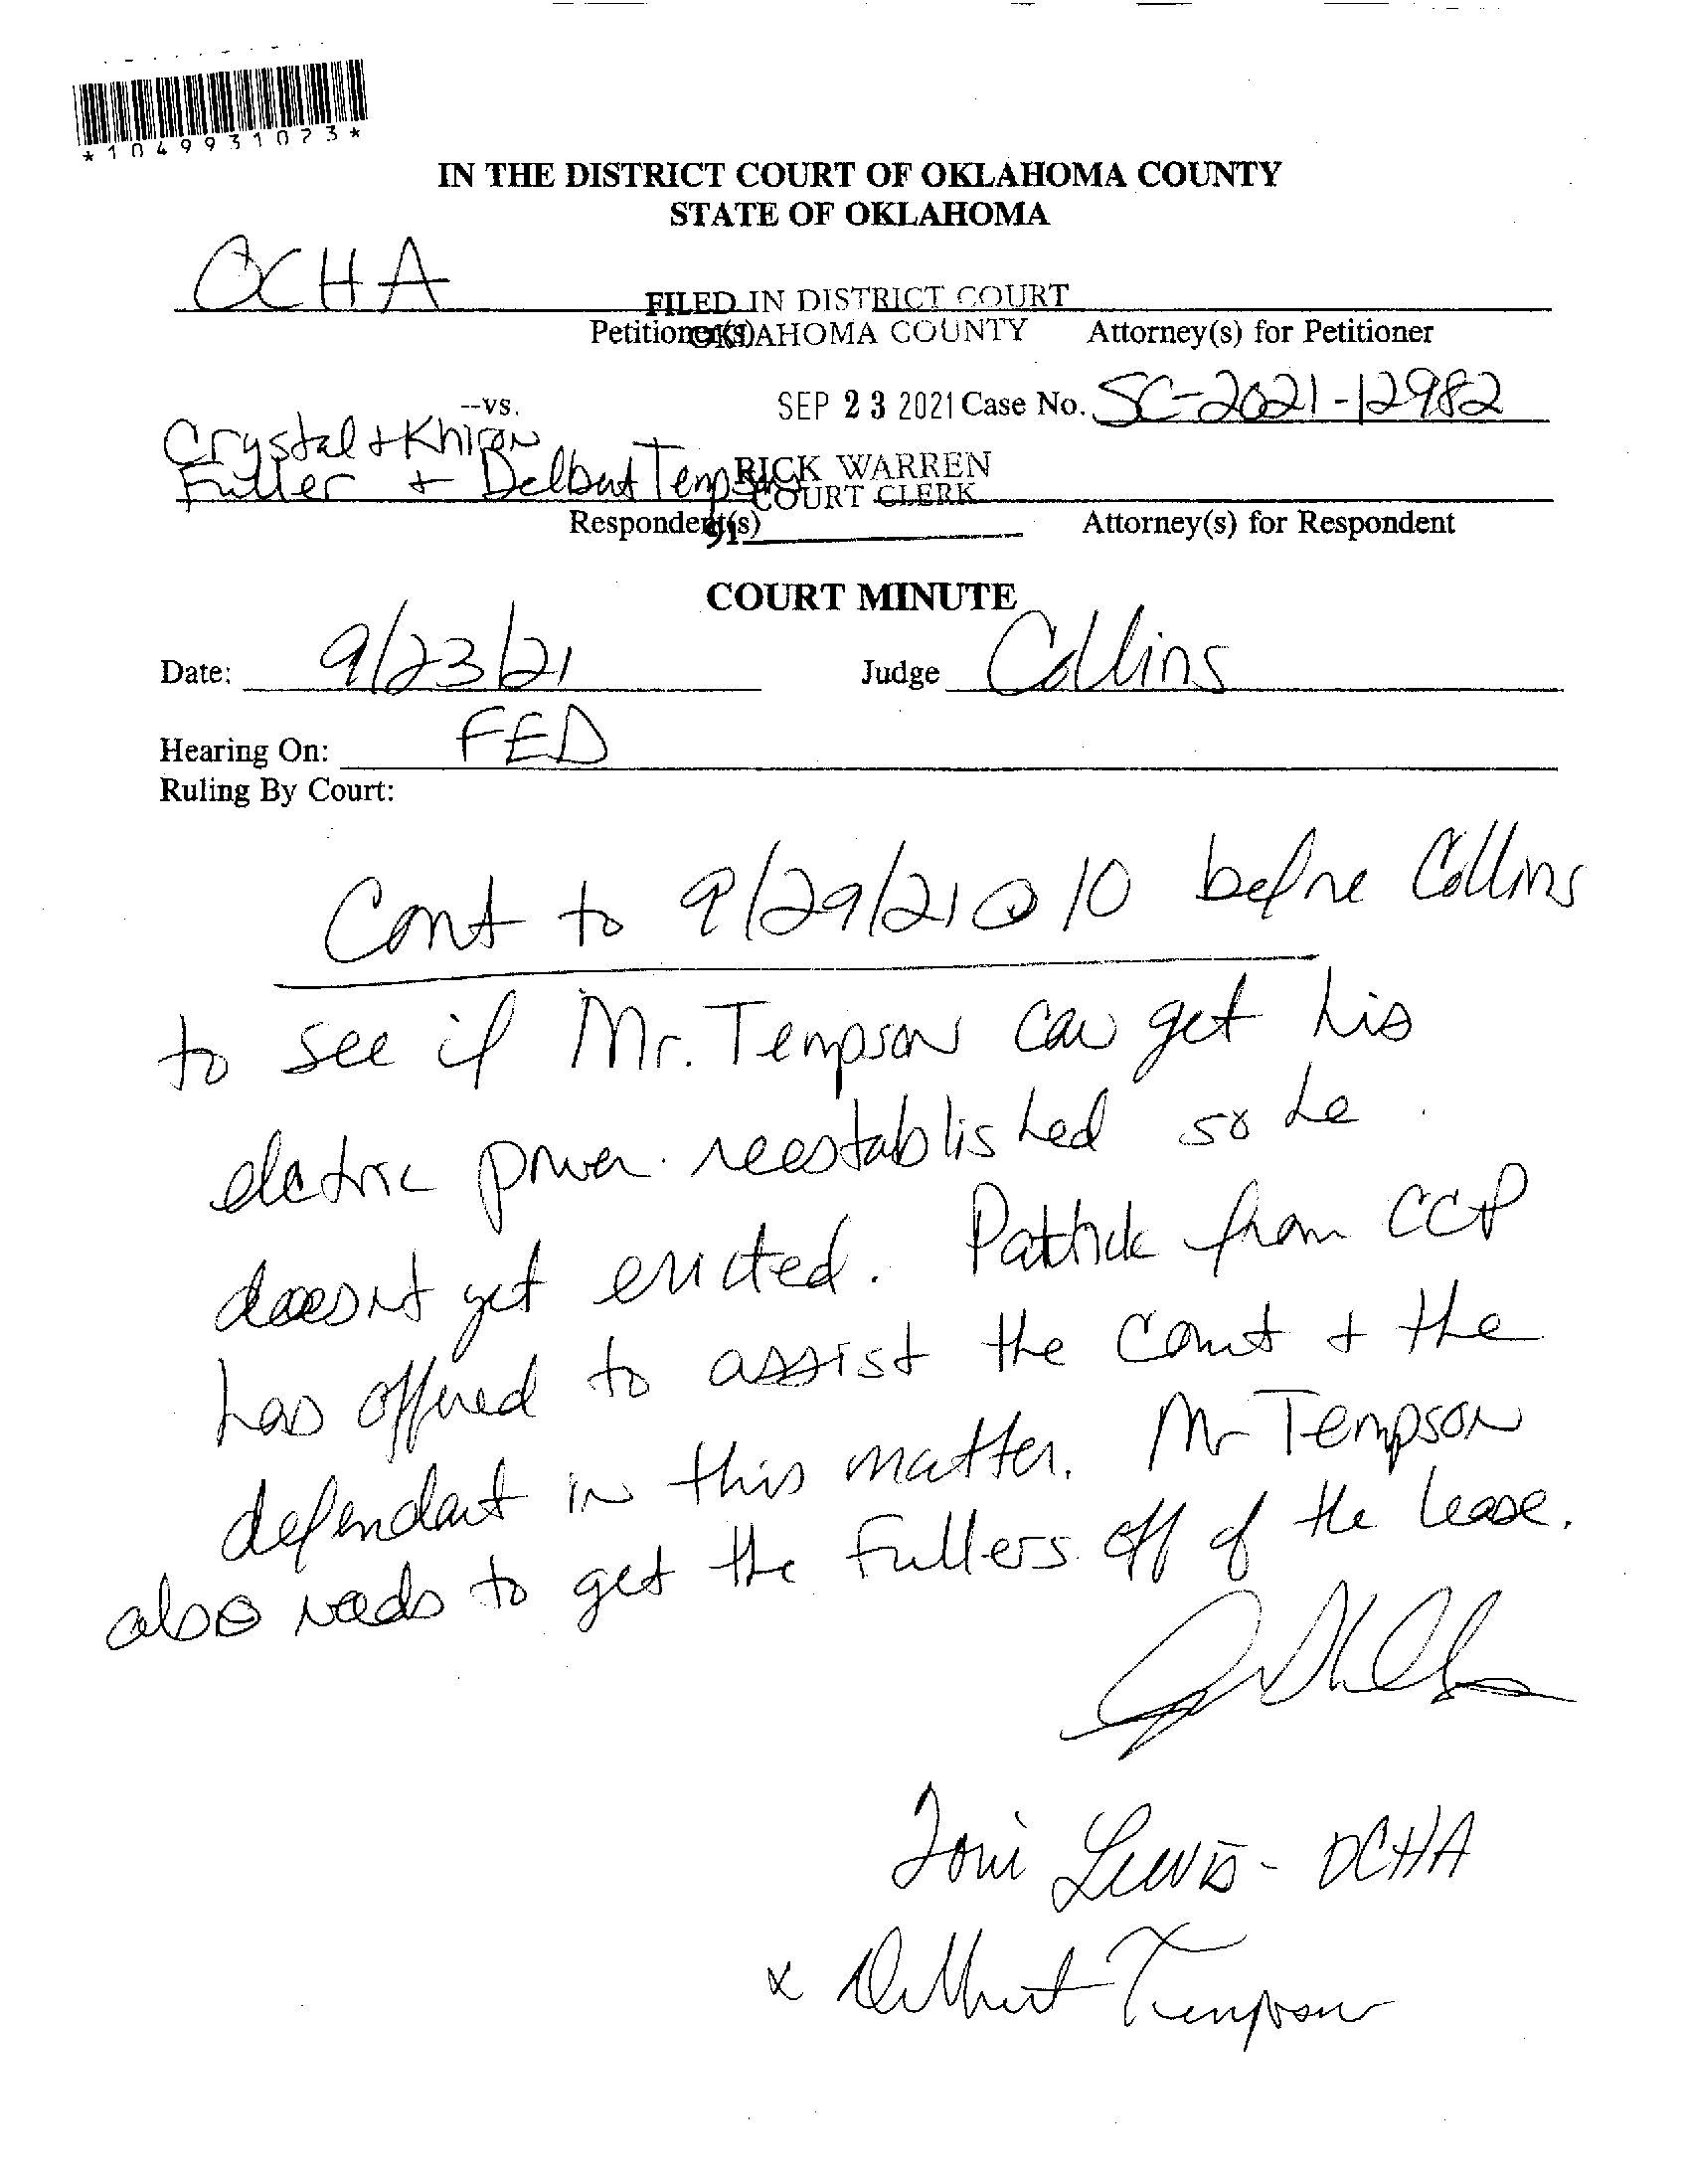 *1049931073*
IN THE DISTRICT COURT OF OKLAHOMA COUNTY
STATE OF OKLAHOMA
OCHA
FILED IN DISTRICT COURT
OKLAHOMA COUNTY
Petitioner(s) Attorney(s) for Petitioner
--vs.
SEP 23 2021 Case No. SC-2021-12982
Crystal + Khiron
Fuller + Delbert Tempson
RICK WARREN
COURT CLERK
Respondent(s) Attorney(s) for Respondent
91
COURT MINUTE
Date: 9/23/21 Judge Collins
Hearing On: FED
Ruling By Court:
Cont to 9/29/21 @ 10 before Collins
to see if Mr. Tempson can get his
electric power reestablished so he
doesnt get evicted. Patrick from CCP
has offered to assist the Court + the
defendant in this matter. Mr Tempson
also needs to get the Fullers off of the lease.
Toni Lewis - OCHA
x Delbert Tempson